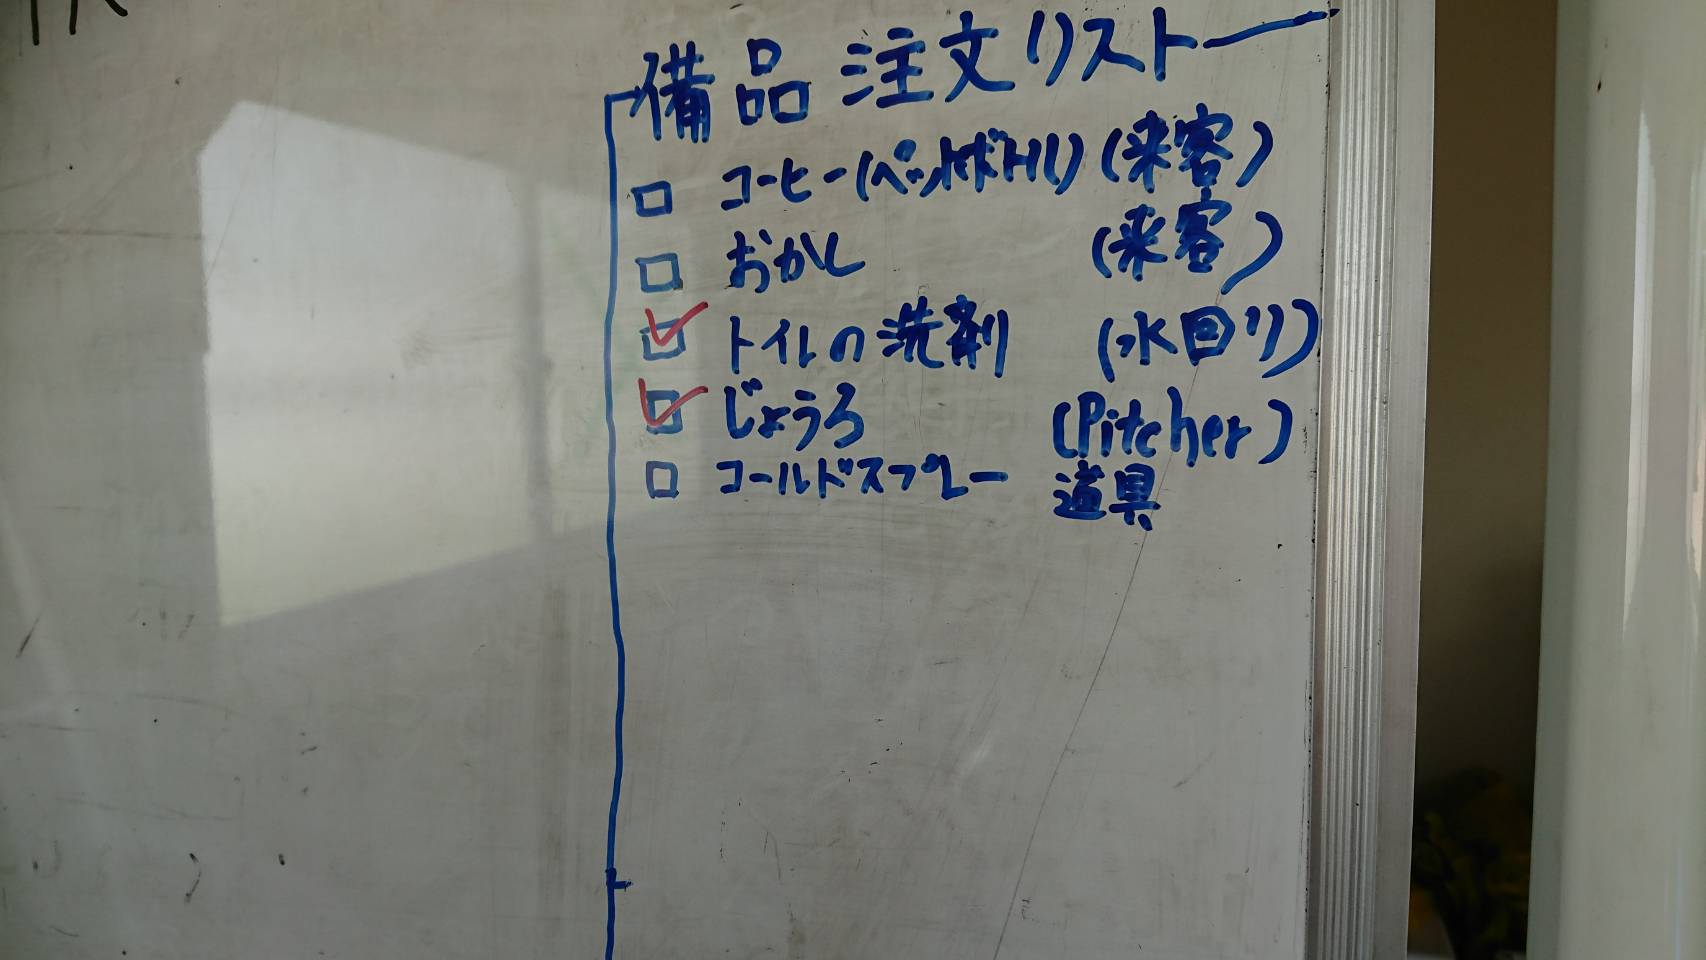 備品 注文リスト
□ コーヒー(ペットボトル) (来客)
□ おかし (来客)
☑ トイレの洗剤 (水回り)
☑ じょうろ (Pitcher)
□ コールドスプレー 道具